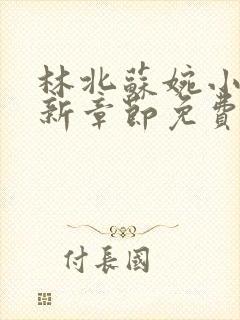 林北蘇婉小
新章節免費
付長國